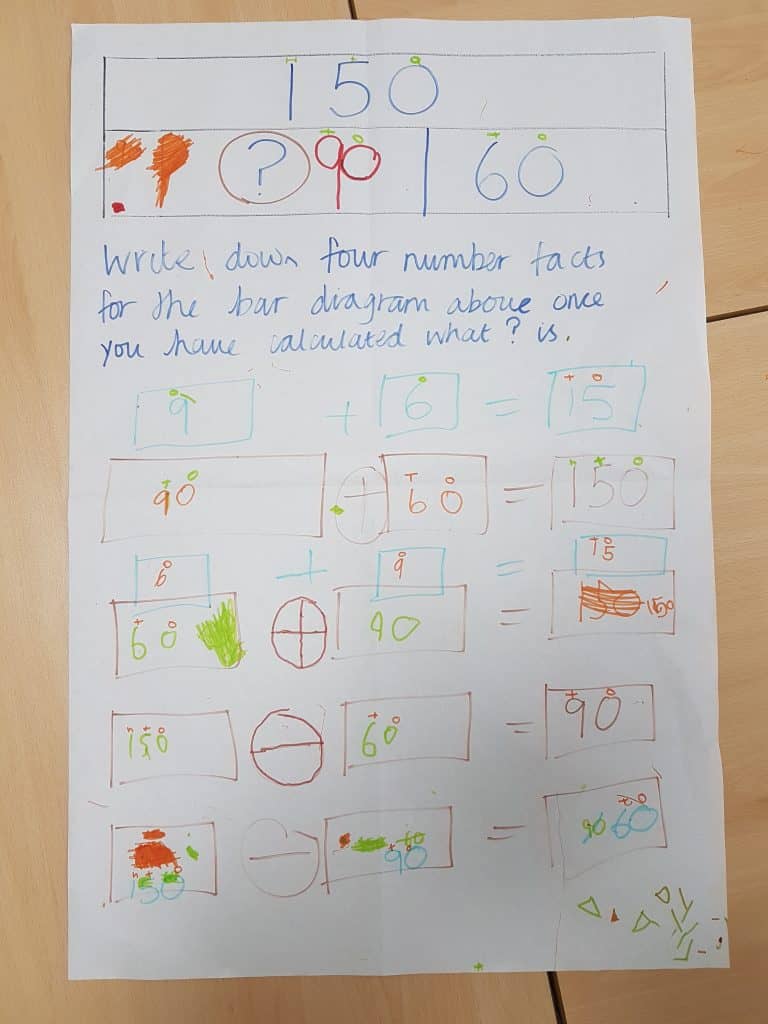 H T O
150
T O T O
? 90 60
Write down four number facts
for the bar diagram above once
you have calculated what ? is.
O O T O
9 + 6 = 15
T O T O H T O
90 + 60 = 150
O O T O
6 + 9 = 15
T O
60 + 90 = 150
H T O T O T O
150 - 60 = 90
H T O T O T O
150 - 90 = 90 60